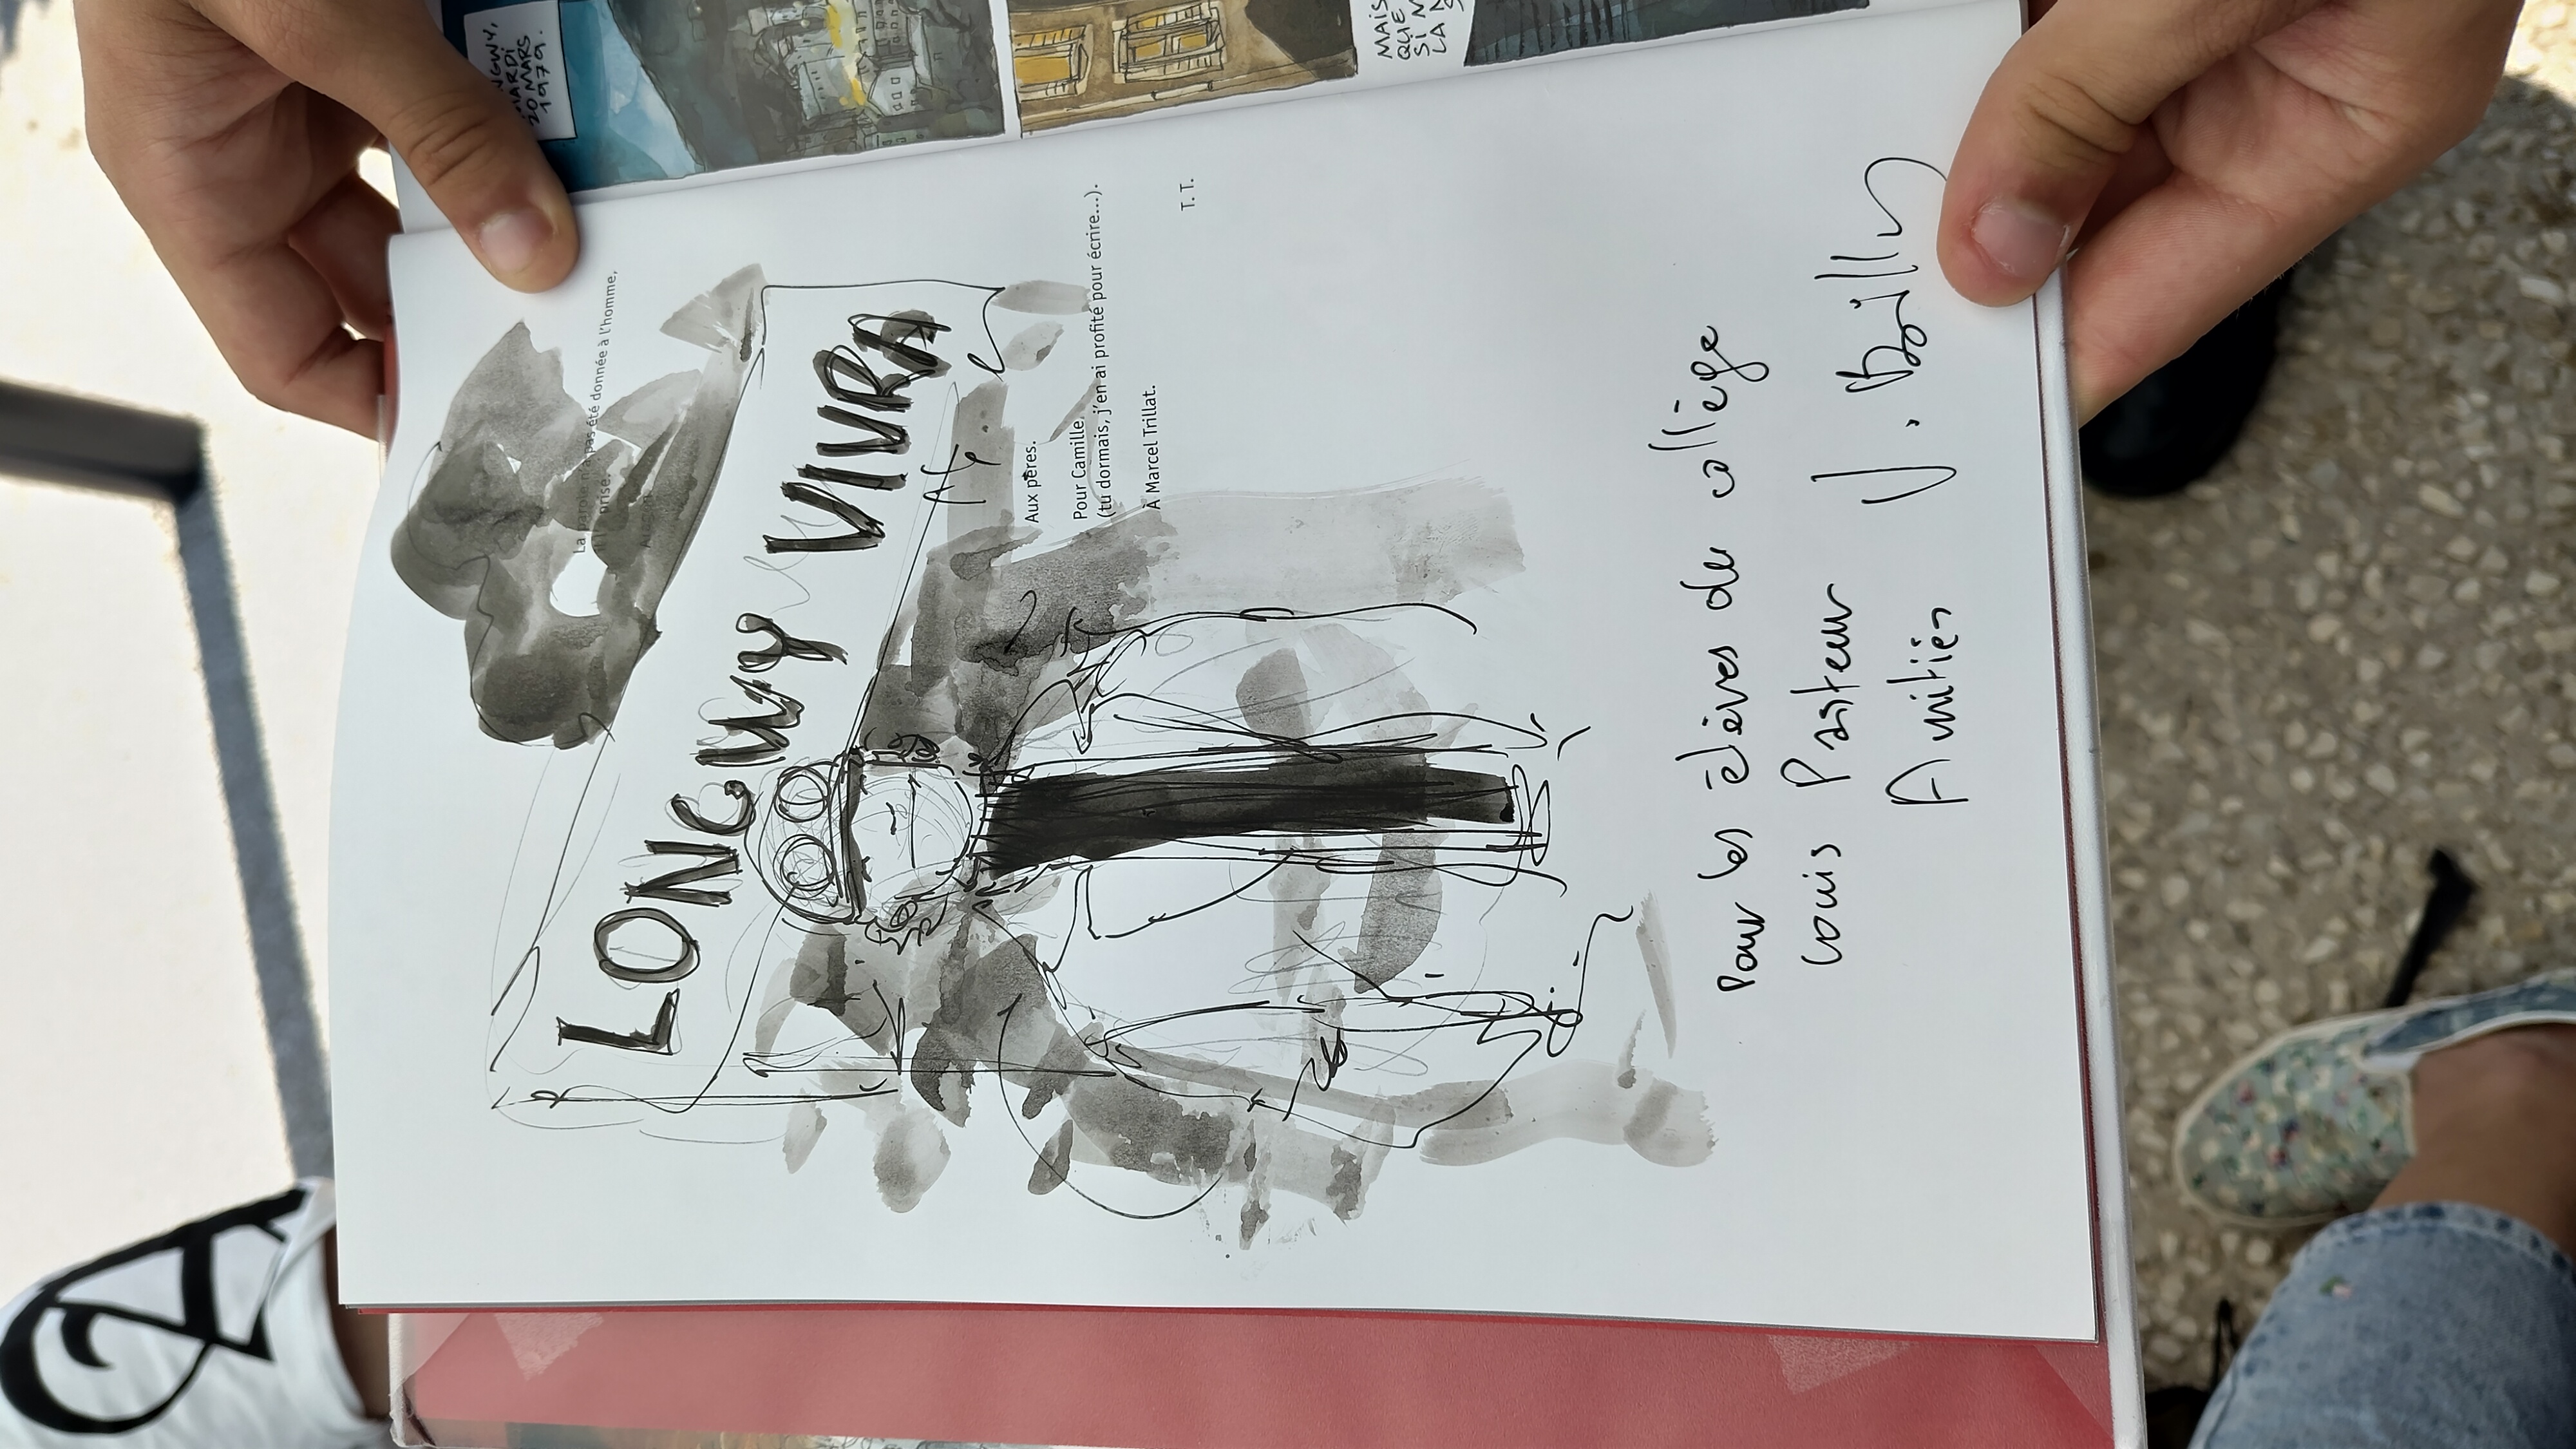 LONGWY,
MARDI
20 MARS
1979.
MAIS
QUE
SI
LA
La parole n'a pas été donnée à l'homme,
prise.
LONGWY VIVRA
Aux pères.
Pour Camille
(tu dormais, j'en ai profité pour écrire...).
À Marcel Trillat.
T. T.
Pour les élèves du collège
Louis Pasteur
Amitiés
J. Bailly